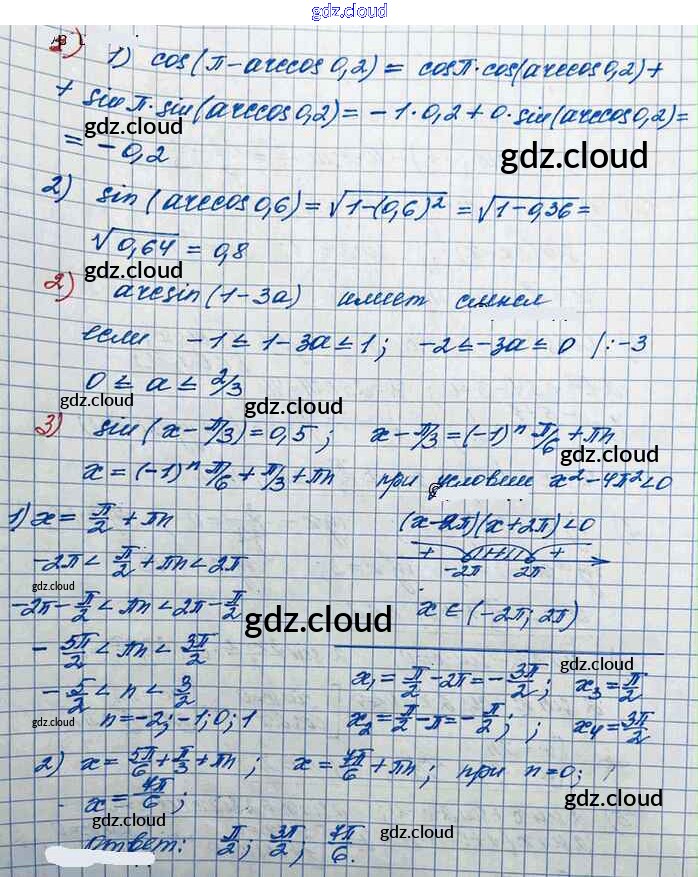 gdz.cloud
2) 1) cos(π-arccos0,2) = cosπ·cos(arccos0,2)+
+ sinπ·sin(arccos0,2)=-1·0,2+0·sin(arccos0,2)=
= -0,2
gdz.cloud
gdz.cloud
2) sin(arccos0,6)=√1-(0,6)² = √1-0,36 =
gdz.cloud
√0,64 = 0,8
gdz.cloud
gdz.cloud
2) arcsin(1-3a) имеет смысл
если -1≤1-3a≤1; -2≤-3a≤0 /:-3
0 ≤ a ≤ 2/3
gdz.cloud
gdz.cloud
gdz.cloud
3) sin(x-π/3)=0,5; x-π/3=(-1)ⁿ π/6+πn
gdz.cloud
x=(-1)ⁿ π/6+π/3+πn при условии x²-4π²<0
1) x= π/2 +πn (x-2π)(x+2π)<0
-2π< π/2 +πn<2π + - + -2π 2π
gdz.cloud
-2π- π/2 <πn<2π- π/2 x∈(-2π; 2π)
gdz.cloud
gdz.cloud
- 5π/2 <πn< 3π/2
gdz.cloud
- 5/2 <n< 3/2 x₁= π/2 -2π=- 3π/2; x₃= π/2
gdz.cloud
n=-2;-1;0;1 x₂= π/2 -π=- π/2; ; x₄= 3π/2
gdz.cloud
2) x= 5π/6 + π/3 +πn; x= 7π/6 +πn; при n=0;
gdz.cloud
x= 7π/6;
gdz.cloud
Ответ: π/2; 3π/2; 7π/6.
gdz.cloud